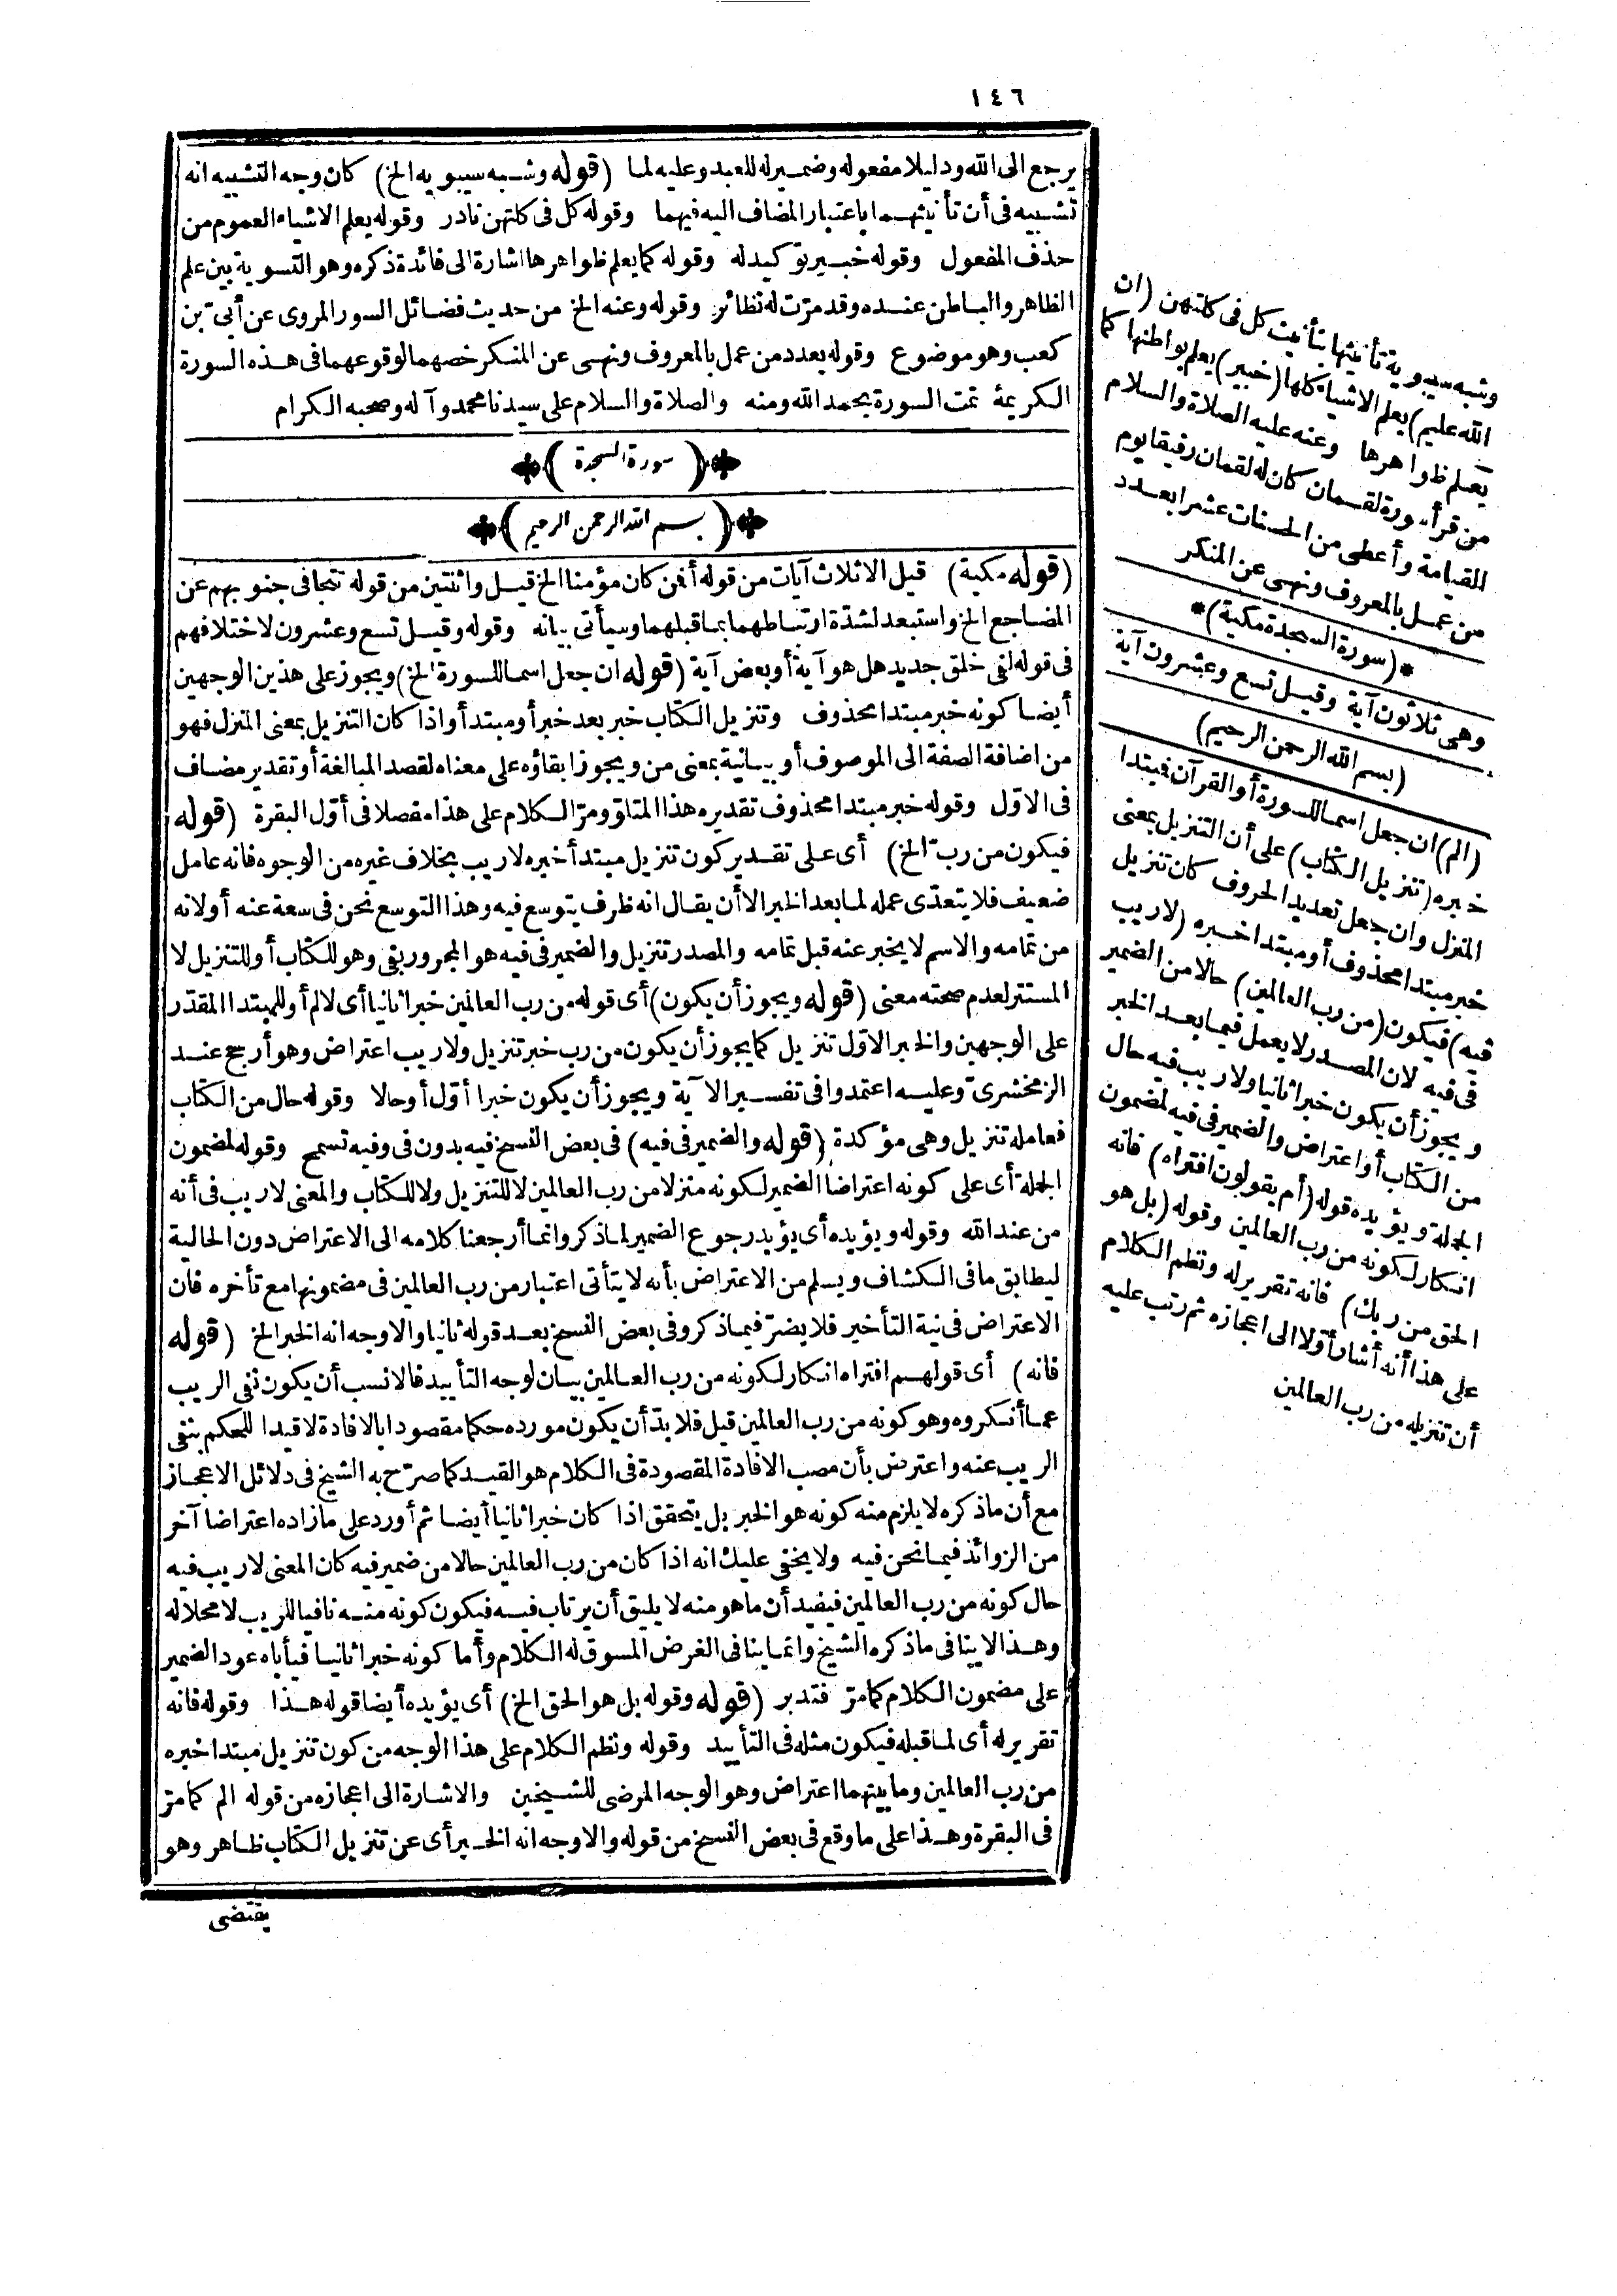 ١٤٦
يرجع الى الله ودليلا مفعوله وضميره له للعبد وعليه لما (قوله وشبه سيبويه الخ) كان وجه التشبيه انه
تشبيه فى أن تأنيثهما باعتبار المضاف اليه فيهما وقوله كل فى كلتهن نادر وقوله يعلم الاشياء العموم من
حذف المفعول وقوله خبير توكيد له وقوله كما يعلم ظواهرها اشارة الى فائدة ذكره وهو التسوية بين علم
الظاهر والباطن عنده وقد مرّت له نظائر وقوله وعنه الخ من حديث فضائل السور المروى عن أبىّ بن
كعب وهو موضوع وقوله بعدد من عمل بالمعروف ونهى عن المنكر خصهما لوقوعهما فى هذه السورة
الكريمة تمت السورة بحمد الله ومنه والصلاة والسلام على سيدنا محمد وآله وصحبه الكرام
(سورة السجدة)
(بسم الله الرحمن الرحيم)
(قوله مكية) قيل الا ثلاث آيات من قوله أفمن كان مؤمنا الخ قيل واثنتين من قوله تتجافى جنوبهم عن
المضاجع الخ واستبعد لشدّة ارتباطهما بما قبلهما وسيأتى بيانه وقوله وقيل تسع وعشرون لاختلافهم
فى قوله لفى خلق جديد هل هو آية أو بعض آية (قوله ان جعل اسما للسورة الخ) ويجوز على هذين الوجهين
أيضا كونه خبر مبتدا محذوف وتنزيل الكتاب خبر بعد خبر أو مبتدأ واذا كان التنزيل بمعنى المنزل فهو
من اضافة الصفة الى الموصوف أو بيانية بمعنى من ويجوز ابقاؤه على معناه لقصد المبالغة أو تقدير مضاف
فى الاوّل وقوله خبر مبتدا محذوف تقديره هذا المتلوّ ومرّ الكلام على هذا مفصلا فى أوّل البقرة (قوله
فيكون من رب الخ) أى على تقدير كون تنزيل مبتدأ خبره لاريب بخلاف غيره من الوجوه فانه عامل
ضعيف فلا يتعدّى عمله لما بعد الخبر الا أن يقال انه ظرف يتوسع فيه وهذا التوسع نحن فى سعة عنه أو لانه
من تمامه والاسم لا يخبر عنه قبل تمامه والمصدر تنزيل والضمير فى فيه هو المجرور بفى وهو للكتاب أو للتنزيل لا
المستتر لعدم صحته معنى (قوله ويجوز أن يكون) أى قوله من رب العالمين خبرا ثانيا أى لالم أو للمبتدا المقدّر
على الوجهين والخبر الاوّل تنزيل كما يجوز أن يكون من رب خبر تنزيل ولاريب اعتراض وهو أرجح عند
الزمخشرىّ وعليه اعتمدوا فى تفسير الآية ويجوز أن يكون خبرا أوّل أو حالا وقوله حال من الكتاب
فعامله تنزيل وهى مؤكدة (قوله والضمير فى فيه) فى بعض النسخ فيه بدون فى وفيه تسمح وقوله لمضمون
الجملة أى على كونه اعتراضا الضمير لكونه منزلا من رب العالمين لا للتنزيل ولا للكتاب والمعنى لاريب فى أنه
من عند الله وقوله ويؤيده أى يؤيد رجوع الضمير لما ذكر وانما أرجعنا كلامه الى الاعتراض دون الحالية
ليطابق ما فى الكشاف ويسلم من الاعتراض بأنه لا يتأتى اعتبار من رب العالمين فى مضمونها مع تأخره فان
الاعتراض فى نية التأخير فلا يضرّ فيما ذكر وفى بعض النسخ بعد قوله ثانيا والاوجه انه الخبر الخ (قوله
فانه) أى قولهم افتراه انكار لكونه من رب العالمين بيان لوجه التأييد فالانسب أن يكون نفى الريب
عما أنكروه وهو كونه من رب العالمين قيل فلا بدّ أن يكون مورده حكما مقصودا بالافادة لا قيدا للحكم بنفى
الريب عنه واعترض بأن مصب الافادة المقصودة فى الكلام هو القيد كما صرّح به الشيخ فى دلائل الاعجاز
مع أن ماذكره لا يلزم منه كونه هو الخبر بل يتحقق اذا كان خبرا ثانيا أيضا ثم أورد على ما زاده اعتراضا آخر
من الزوائد فيما نحن فيه ولا يخفى عليك انه اذا كان من رب العالمين حالا من ضمير فيه كان المعنى لاريب فيه
حال كونه من رب العالمين فيفيد أن ما هو منه لا يليق أن يرتاب فيه فيكون كونه منه نافيا للريب لا محلا له
وهذا لا ينافى ما ذكره الشيخ وانما ينافى الغرض المسوق له الكلام وأما كونه خبرا ثانيا فيأباه عود الضمير
على مضمون الكلام كما مرّ فتدبر (قوله وقوله بل هو الحق الخ) أى يؤيده أيضا قوله هذا وقوله فانه
تقرير له أى لما قبله فيكون مثله فى التأييد وقوله ونظم الكلام على هذا الوجه من كون تنزيل مبتدا خبره
من رب العالمين وما بينهما اعتراض وهو الوجه المرضى للشيخين والاشارة الى اعجازه من قوله الم كما مرّ
فى البقرة وهذا على ما وقع فى بعض النسخ من قوله والاوجه انه الخبر أى عن تنزيل الكتاب ظاهر وهو
يقتضى
وشبه سيبويه تأنيثها بتأنيث كل فى كلتهن (ان
الله عليم) يعلم الاشياء كلها (خبير) يعلم بواطنها كما
يعلم ظواهرها وعنه عليه الصلاة والسلام
من قرأ سورة لقمان كان له لقمان رفيقا يوم
القيامة وأعطى من الحسنات عشرا بعدد
من عمل بالمعروف ونهى عن المنكر
*(سورة السجدة مكية)*
وهى ثلاثون آية وقيل تسع وعشرون آية
(بسم الله الرحمن الرحيم)
(الم) ان جعل اسما للسورة أو القرآن فمبتدا
خبره (تنزيل الكتاب) على أن التنزيل بمعنى
المنزل وان جعل تعديد الحروف كان تنزيل
خبر مبتدا محذوف أو مبتدا خبره (لاريب
فيه) فيكون (من رب العالمين) حالا من الضمير
فى فيه لان المصدر لا يعمل فيما بعد الخبر
ويجوز أن يكون خبرا ثانيا ولاريب فيه حال
من الكتاب أو اعتراض والضمير فى فيه لمضمون
الجملة ويؤيده قوله (أم يقولون افتراه) فانه
انكار لكونه من رب العالمين وقوله (بل هو
الحق من ربك) فانه تقرير له ونظم الكلام
على هذا أنه أشار أوّلا الى اعجازه ثم رتب عليه
أن تنزيله من رب العالمين